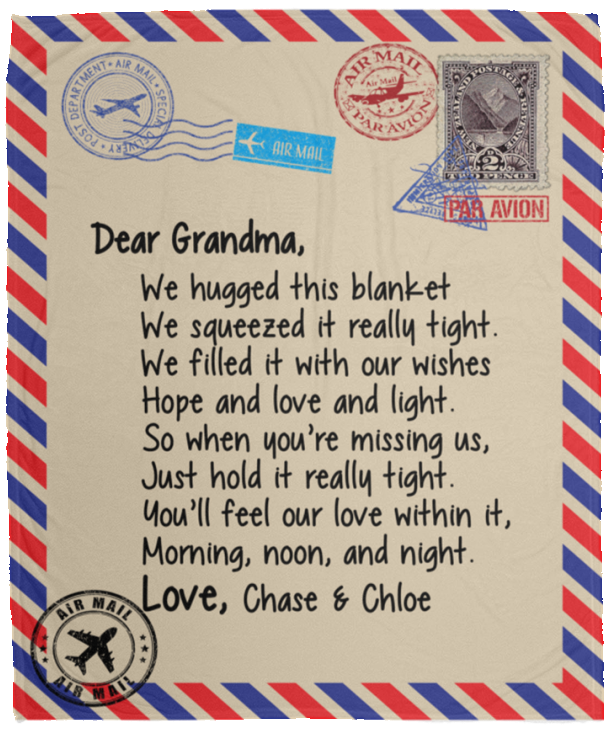 POST DEPARTMENT • AIR MAIL • SPECIAL DELIVERY •
AIR MAIL
AIR MAIL
Air Mail
PAR AVION
2
TWO PENCE
PAR AVION
Dear Grandma,
We hugged this blanket
We squeezed it really tight.
We filled it with our wishes
Hope and love and light.
So when you're missing us,
Just hold it really tight.
You'll feel our love within it,
Morning, noon, and night.
Love, Chase & Chloe
AIR MAIL
AIR MAIL